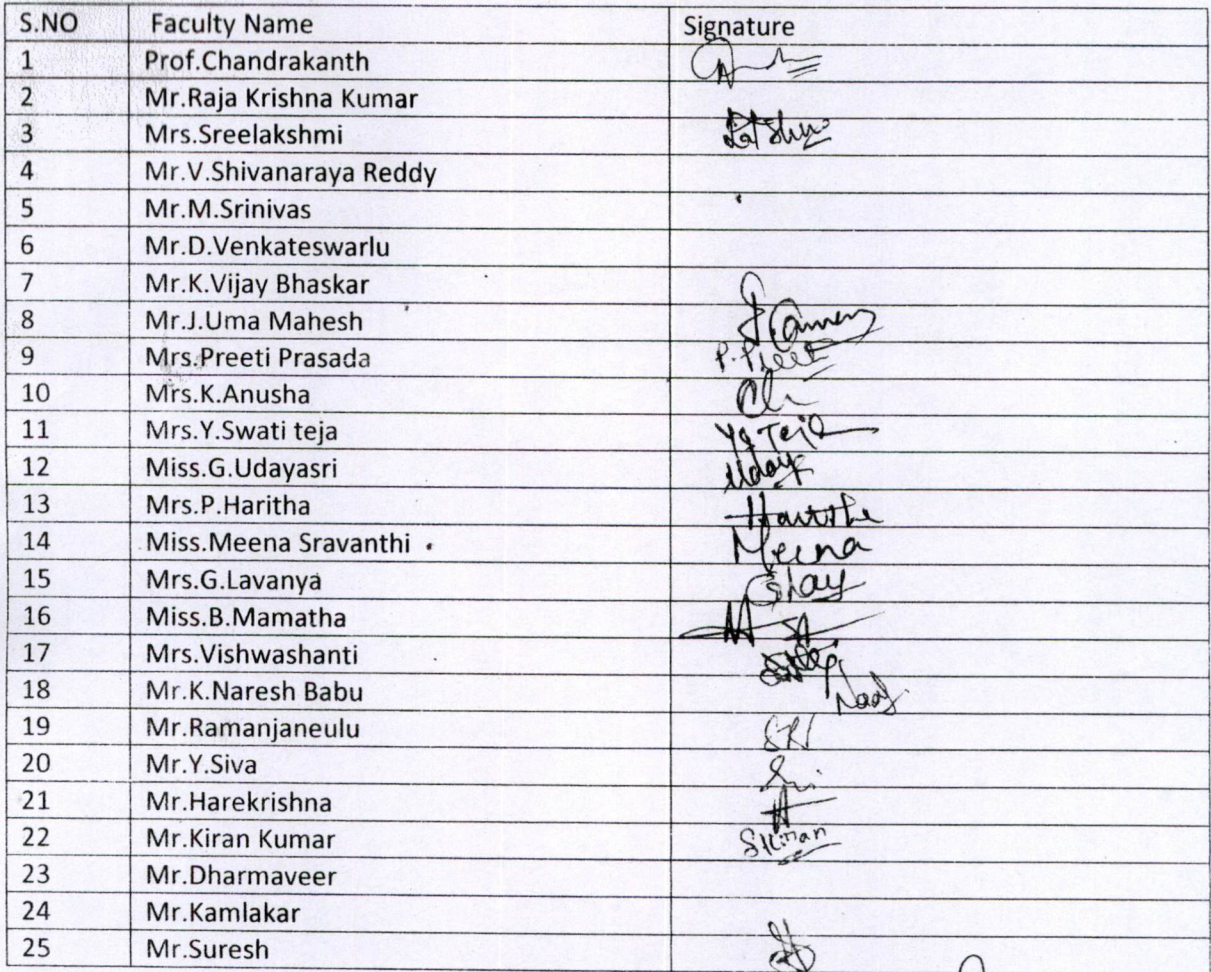 S.NO Faculty Name Signature
1 Prof.Chandrakanth
2 Mr.Raja Krishna Kumar
3 Mrs.Sreelakshmi
4 Mr.V.Shivanaraya Reddy
5 Mr.M.Srinivas
6 Mr.D.Venkateswarlu
7 Mr.K.Vijay Bhaskar
8 Mr.J.Uma Mahesh
9 Mrs.Preeti Prasada P.Preeti
10 Mrs.K.Anusha
11 Mrs.Y.Swati teja
12 Miss.G.Udayasri Udaya
13 Mrs.P.Haritha Haritha
14 Miss.Meena Sravanthi Meena
15 Mrs.G.Lavanya
16 Miss.B.Mamatha
17 Mrs.Vishwashanti
18 Mr.K.Naresh Babu
19 Mr.Ramanjaneulu
20 Mr.Y.Siva
21 Mr.Harekrishna
22 Mr.Kiran Kumar SKiran
23 Mr.Dharmaveer
24 Mr.Kamlakar
25 Mr.Suresh